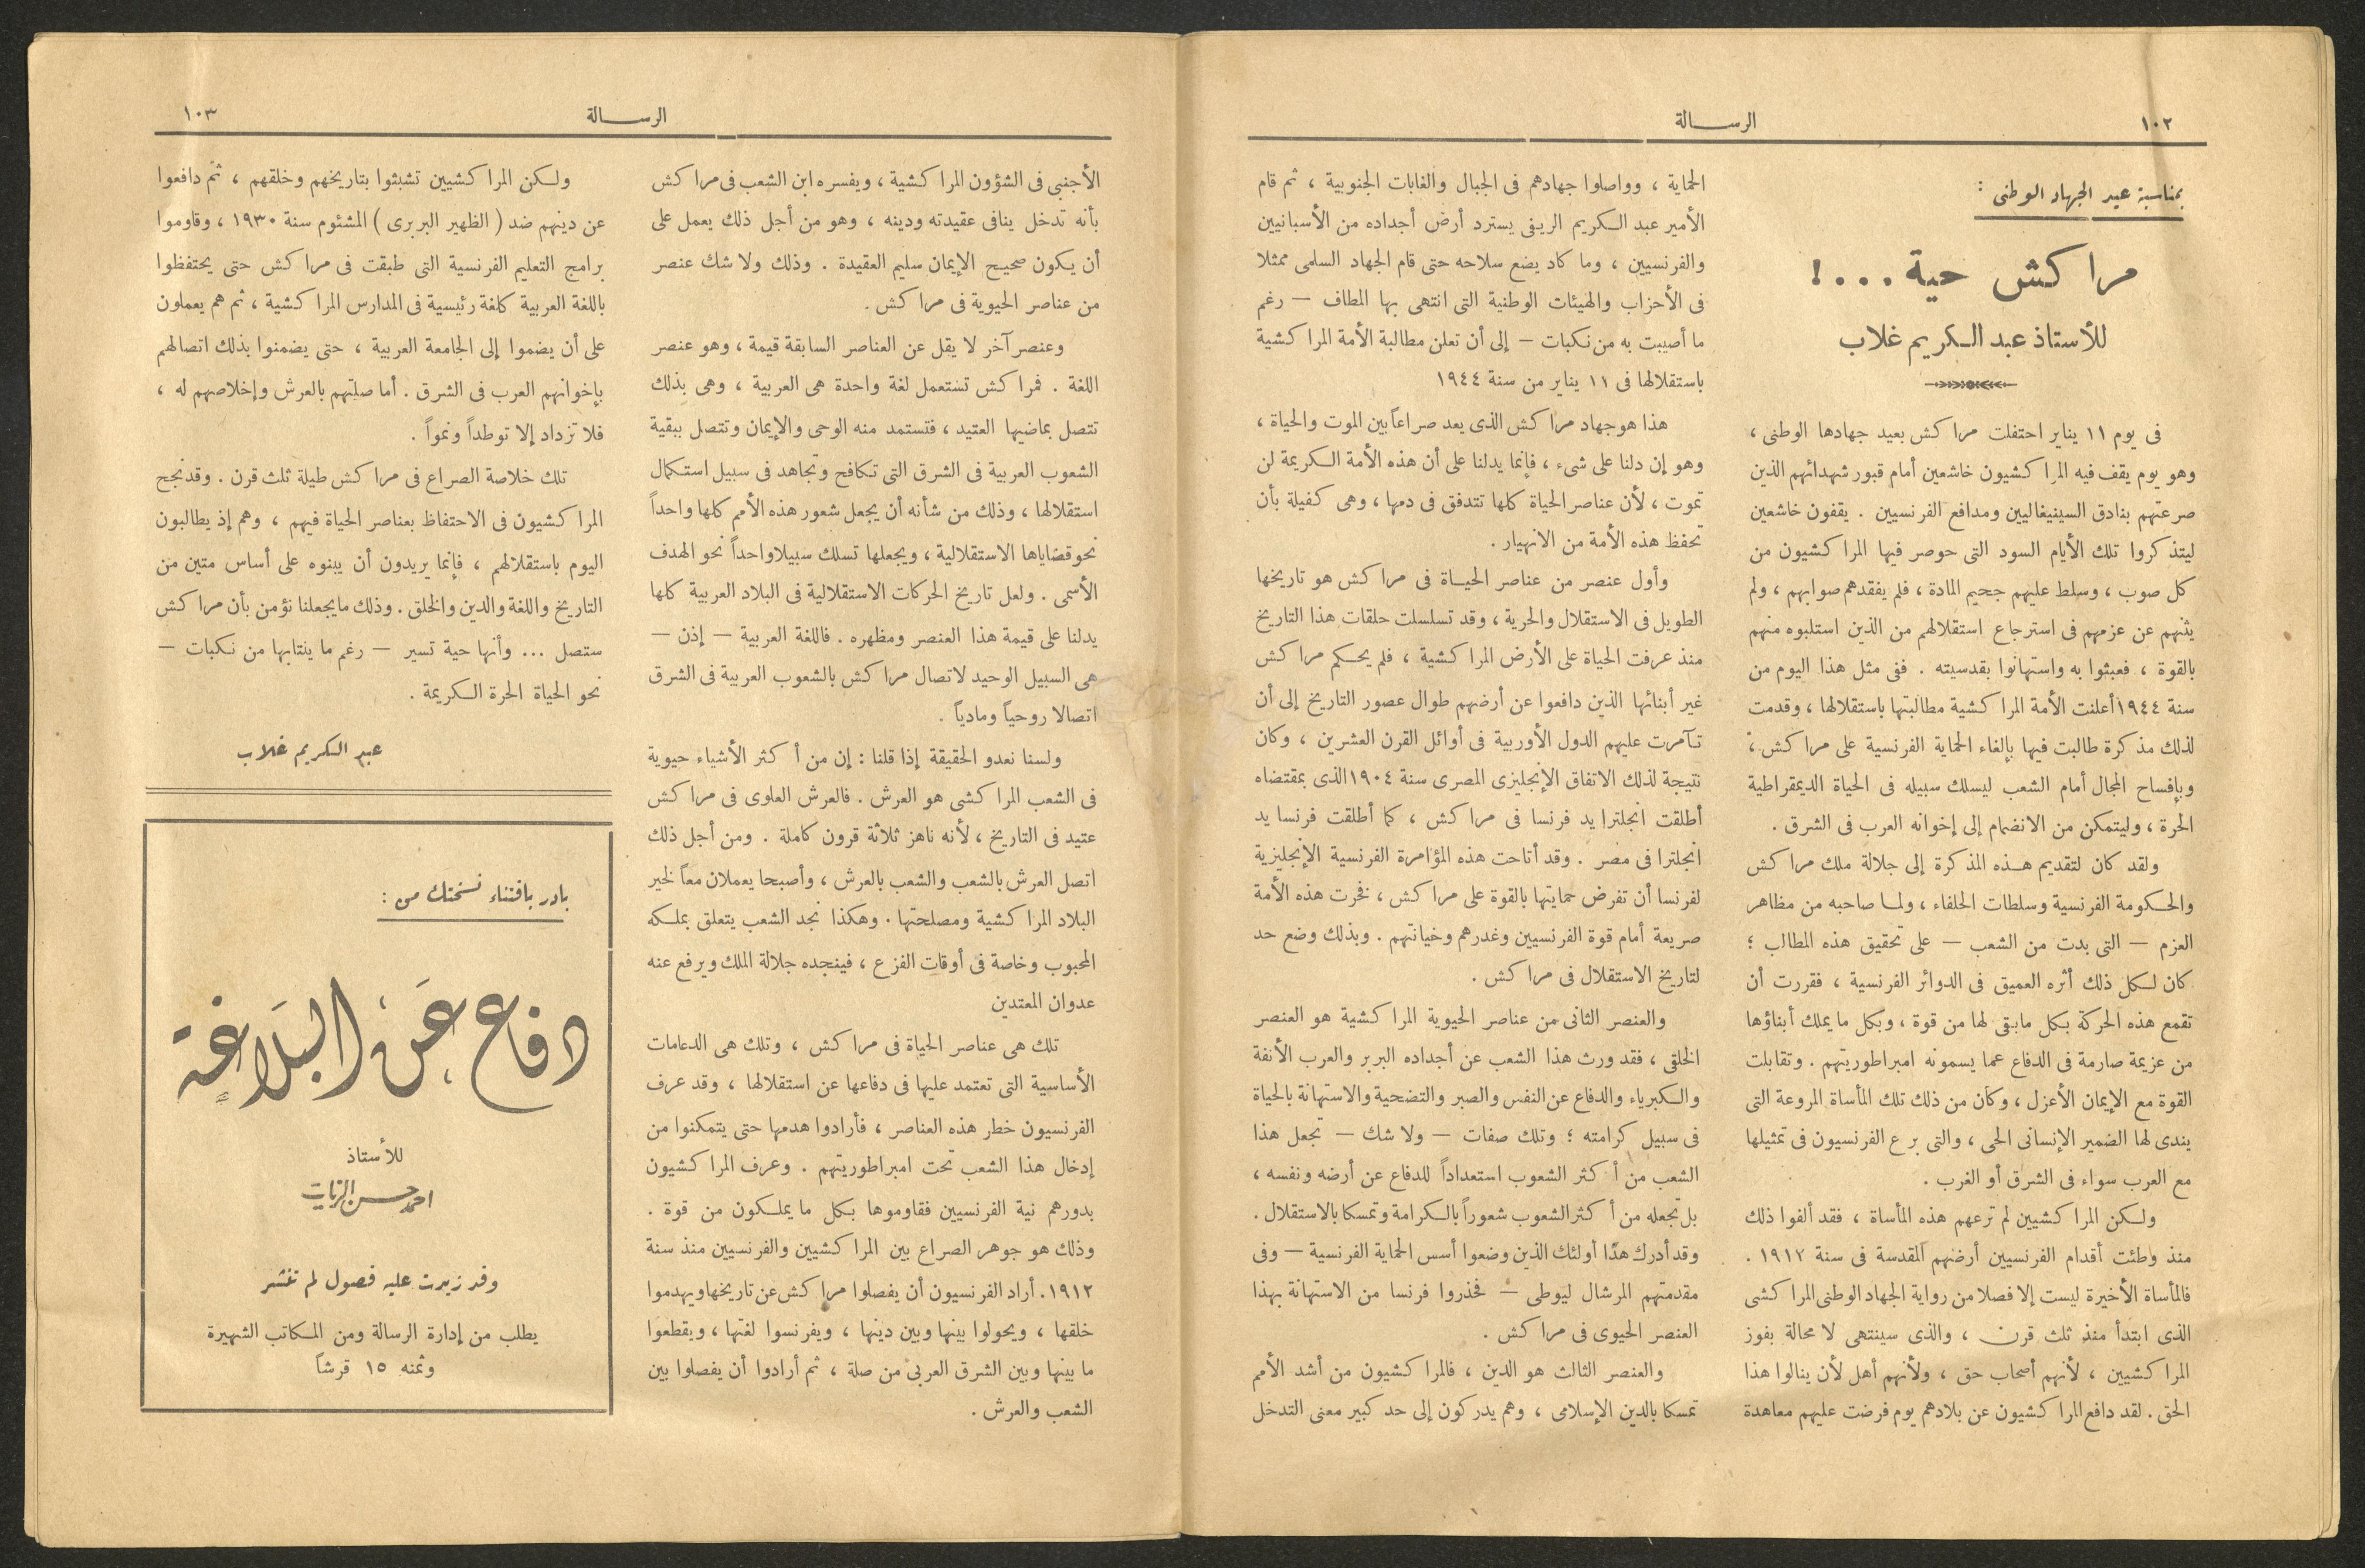 ١٠٢
الرسالة
بمناسبة عيد الجهاد الوطنى :
مراكش حية ...!
للأستاذ عبد الكريم غلاب
فى يوم ١١ يناير احتفلت مراكش بعيد جهادها الوطنى ،
وهو يوم يقف فيه المراكشيون خاشعين أمام قبور شهدائهم الذين
صرعتهم بنادق السينيغاليين ومدافع الفرنسيين . يقفون خاشعين
ليتذكروا تلك الأيام السود التى حوصر فيها المراكشيون من
كل صوب ، وسلط عليهم جحيم المادة ، فلم يفقدهم صوابهم ، ولم
يثنهم عن عزمهم فى استرجاع استقلالهم من الذين استلبوه منهم
بالقوة ، فعبثوا به واستهانوا بقدسيته . ففى مثل هذا اليوم من
سنة ١٩٤٤ أعلنت الأمة المراكشية مطالبتها باستقلالها ، وقدمت
لذلك مذكرة طالبت فيها بإلغاء الحماية الفرنسية على مراكش ،
وبإفساح المجال أمام الشعب ليسلك سبيله فى الحياة الديمقراطية
الحرة ، وليتمكن من الانضمام إلى إخوانه العرب فى الشرق .
ولقد كان لتقديم هذه المذكرة إلى جلالة ملك مراكش
والحكومة الفرنسية وسلطات الحلفاء ، ولما صاحبه من مظاهر
العزم — التى بدت من الشعب — على تحقيق هذه المطالب ؛
كان لكل ذلك أثره العميق فى الدوائر الفرنسية ، فقررت أن
تقمع هذه الحركة بكل ما بقى لها من قوة ، وبكل ما يملك أبناؤها
من عزيمة صارمة فى الدفاع عما يسمونه امبراطوريتهم . وتقابلت
القوة مع الإيمان الأعزل ، وكان من ذلك تلك المأساة المروعة التى
يندى لها الضمير الإنسانى الحى ، والتى برع الفرنسيون فى تمثيلها
مع العرب سواء فى الشرق أو الغرب .
ولكن المراكشيين لم ترعهم هذه المأساة ، فقد ألفوا ذلك
منذ وطئت أقدام الفرنسيين أرضهم المقدسة فى سنة ١٩١٢ .
فالمأساة الأخيرة ليست إلا فصلا من رواية الجهاد الوطنى المراكشى
الذى ابتدأ منذ ثلث قرن ، والذى سينتهى لا محالة بفوز
المراكشيين ، لأنهم أصحاب حق ، ولأنهم أهل لأن ينالوا هذا
الحق . لقد دافع المراكشيون عن بلادهم يوم فرضت عليهم معاهدة
الحماية ، وواصلوا جهادهم فى الجبال والغابات الجنوبية ، ثم قام
الأمير عبد الكريم الريفى يسترد أرض أجداده من الأسبانيين
والفرنسيين ، وما كاد يضع سلاحه حتى قام الجهاد السلمى ممثلا
فى الأحزاب والهيئات الوطنية التى انتهى بها المطاف — رغم
ما أصيبت به من نكبات — إلى أن تعلن مطالبة الأمة المراكشية
باستقلالها فى ١١ يناير من سنة ١٩٤٤
هذا هو جهاد مراكش الذى يعد صراعاً بين الموت والحياة ،
وهو إن دلنا على شىء ، فإنما يدلنا على أن هذه الأمة الكريمة لن
تموت ، لأن عناصر الحياة كلها تتدفق فى دمها ، وهى كفيلة بأن
تحفظ هذه الأمة من الانهيار .
وأول عنصر من عناصر الحياة فى مراكش هو تاريخها
الطويل فى الاستقلال والحرية ، وقد تسلسلت حلقات هذا التاريخ
منذ عرفت الحياة على الأرض المراكشية ، فلم يحكم مراكش
غير أبنائها الذين دافعوا عن أرضهم طوال عصور التاريخ إلى أن
تآمرت عليهم الدول الأوربية فى أوائل القرن العشرين ، وكان
نتيجة لذلك الاتفاق الإنجليزى المصرى سنة ١٩٠٤ الذى بمقتضاه
أطلقت انجلترا يد فرنسا فى مراكش ، كما أطلقت فرنسا يد
انجلترا فى مصر . وقد أتاحت هذه المؤامرة الفرنسية الإنجليزية
لفرنسا أن تفرض حمايتها بالقوة على مراكش ، فخرت هذه الأمة
صريعة أمام قوة الفرنسيين وغدرهم وخيانتهم . وبذلك وضع حد
لتاريخ الاستقلال فى مراكش .
والعنصر الثانى من عناصر الحيوية المراكشية هو العنصر
الخلقى ، فقد ورث هذا الشعب عن أجداده البربر والعرب الأنفة
والكبرياء والدفاع عن النفس والصبر والتضحية والاستهانة بالحياة
فى سبيل كرامته ؛ وتلك صفات — ولا شك — تجعل هذا
الشعب من أكثر الشعوب استعداداً للدفاع عن أرضه ونفسه ،
بل تجعله من أكثر الشعوب شعوراً بالكرامة وتمسكا بالاستقلال .
وقد أدرك هذا أولئك الذين وضعوا أسس الحماية الفرنسية — وفى
مقدمتهم المرشال ليوطى — فحذروا فرنسا من الاستهانة بهذا
العنصر الحيوى فى مراكش .
والعنصر الثالث هو الدين ، فالمراكشيون من أشد الأمم
تمسكا بالدين الإسلامى ، وهم يدركون إلى حد كبير معنى التدخل
الرسالة
١٠٣
الأجنبى فى الشؤون المراكشية ، ويفسره ابن الشعب فى مراكش
بأنه تدخل ينافى عقيدته ودينه ، وهو من أجل ذلك يعمل على
أن يكون صحيح الإيمان سليم العقيدة . وذلك ولا شك عنصر
من عناصر الحيوية فى مراكش .
وعنصر آخر لا يقل عن العناصر السابقة قيمة ، وهو عنصر
اللغة . فمراكش تستعمل لغة واحدة هى العربية ، وهى بذلك
تتصل بماضيها العتيد ، فتستمد منه الوحى والإيمان وتتصل ببقية
الشعوب العربية فى الشرق التى تكافح وتجاهد فى سبيل استكمال
استقلالها ، وذلك من شأنه أن يجعل شعور هذه الأمم كلها واحداً
نحو قضاياها الاستقلالية ، ويجعلها تسلك سبيلا واحداً نحو الهدف
الأسمى . ولعل تاريخ الحركات الاستقلالية فى البلاد العربية كلها
يدلنا على قيمة هذا العنصر ومظهره . فاللغة العربية — إذن —
هى السبيل الوحيد لاتصال مراكش بالشعوب العربية فى الشرق
اتصالا روحياً ومادياً .
ولسنا نعدو الحقيقة إذا قلنا : إن من أكثر الأشياء حيوية
فى الشعب المراكشى هو العرش . فالعرش العلوى فى مراكش
عتيد فى التاريخ ، لأنه ناهز ثلاثة قرون كاملة . ومن أجل ذلك
اتصل العرش بالشعب والشعب بالعرش ، وأصبحا يعملان معاً لخير
البلاد المراكشية ومصلحتها . وهكذا نجد الشعب يتعلق بملكه
المحبوب وخاصة فى أوقات الفزع ، فينجده جلالة الملك ويرفع عنه
عدوان المعتدين
تلك هى عناصر الحياة فى مراكش ، وتلك هى الدعامات
الأساسية التى تعتمد عليها فى دفاعها عن استقلالها ، وقد عرف
الفرنسيون خطر هذه العناصر ، فأرادوا هدمها حتى يتمكنوا من
إدخال هذا الشعب تحت امبراطوريتهم . وعرف المراكشيون
بدورهم نية الفرنسيين فقاوموها بكل ما يملكون من قوة .
وذلك هو جوهر الصراع بين المراكشيين والفرنسيين منذ سنة
١٩١٢ . أراد الفرنسيون أن يفصلوا مراكش عن تاريخها ويهدموا
خلقها ، ويحولوا بينها وبين دينها ، ويفرنسوا لغتها ، ويقطعوا
ما بينها وبين الشرق العربى من صلة ، ثم أرادوا أن يفصلوا بين
الشعب والعرش .
ولكن المراكشيين تشبثوا بتاريخهم وخلقهم ، ثم دافعوا
عن دينهم ضد ( الظهير البربرى ) المشئوم سنة ١٩٣٠ ، وقاوموا
برامج التعليم الفرنسية التى طبقت فى مراكش حتى يحتفظوا
باللغة العربية كلغة رئيسية فى المدارس المراكشية ، ثم هم يعملون
على أن يضموا إلى الجامعة العربية ، حتى يضمنوا بذلك اتصالهم
بإخوانهم العرب فى الشرق . أما صلتهم بالعرش وإخلاصهم له ،
فلا تزداد إلا توطداً ونمواً .
تلك خلاصة الصراع فى مراكش طيلة ثلث قرن . وقد نجح
المراكشيون فى الاحتفاظ بعناصر الحياة فيهم ، وهم إذ يطالبون
اليوم باستقلالهم ، فإنما يريدون أن يبنوه على أساس متين من
التاريخ واللغة والدين والخلق . وذلك ما يجعلنا نؤمن بأن مراكش
ستصل ... وأنها حية تسير — رغم ما ينتابها من نكبات —
نحو الحياة الحرة الكريمة .
عبد الكريم غلاب
بادر باقتناء نسختك من :
دفاع عَن البَلاغة
للأستاذ
احمد حسن الزيات
وقد زيدت عليه فصول لم تنشر
يطلب من إدارة الرسالة ومن المكاتب الشهيرة
وثمنه ١٥ قرشاً